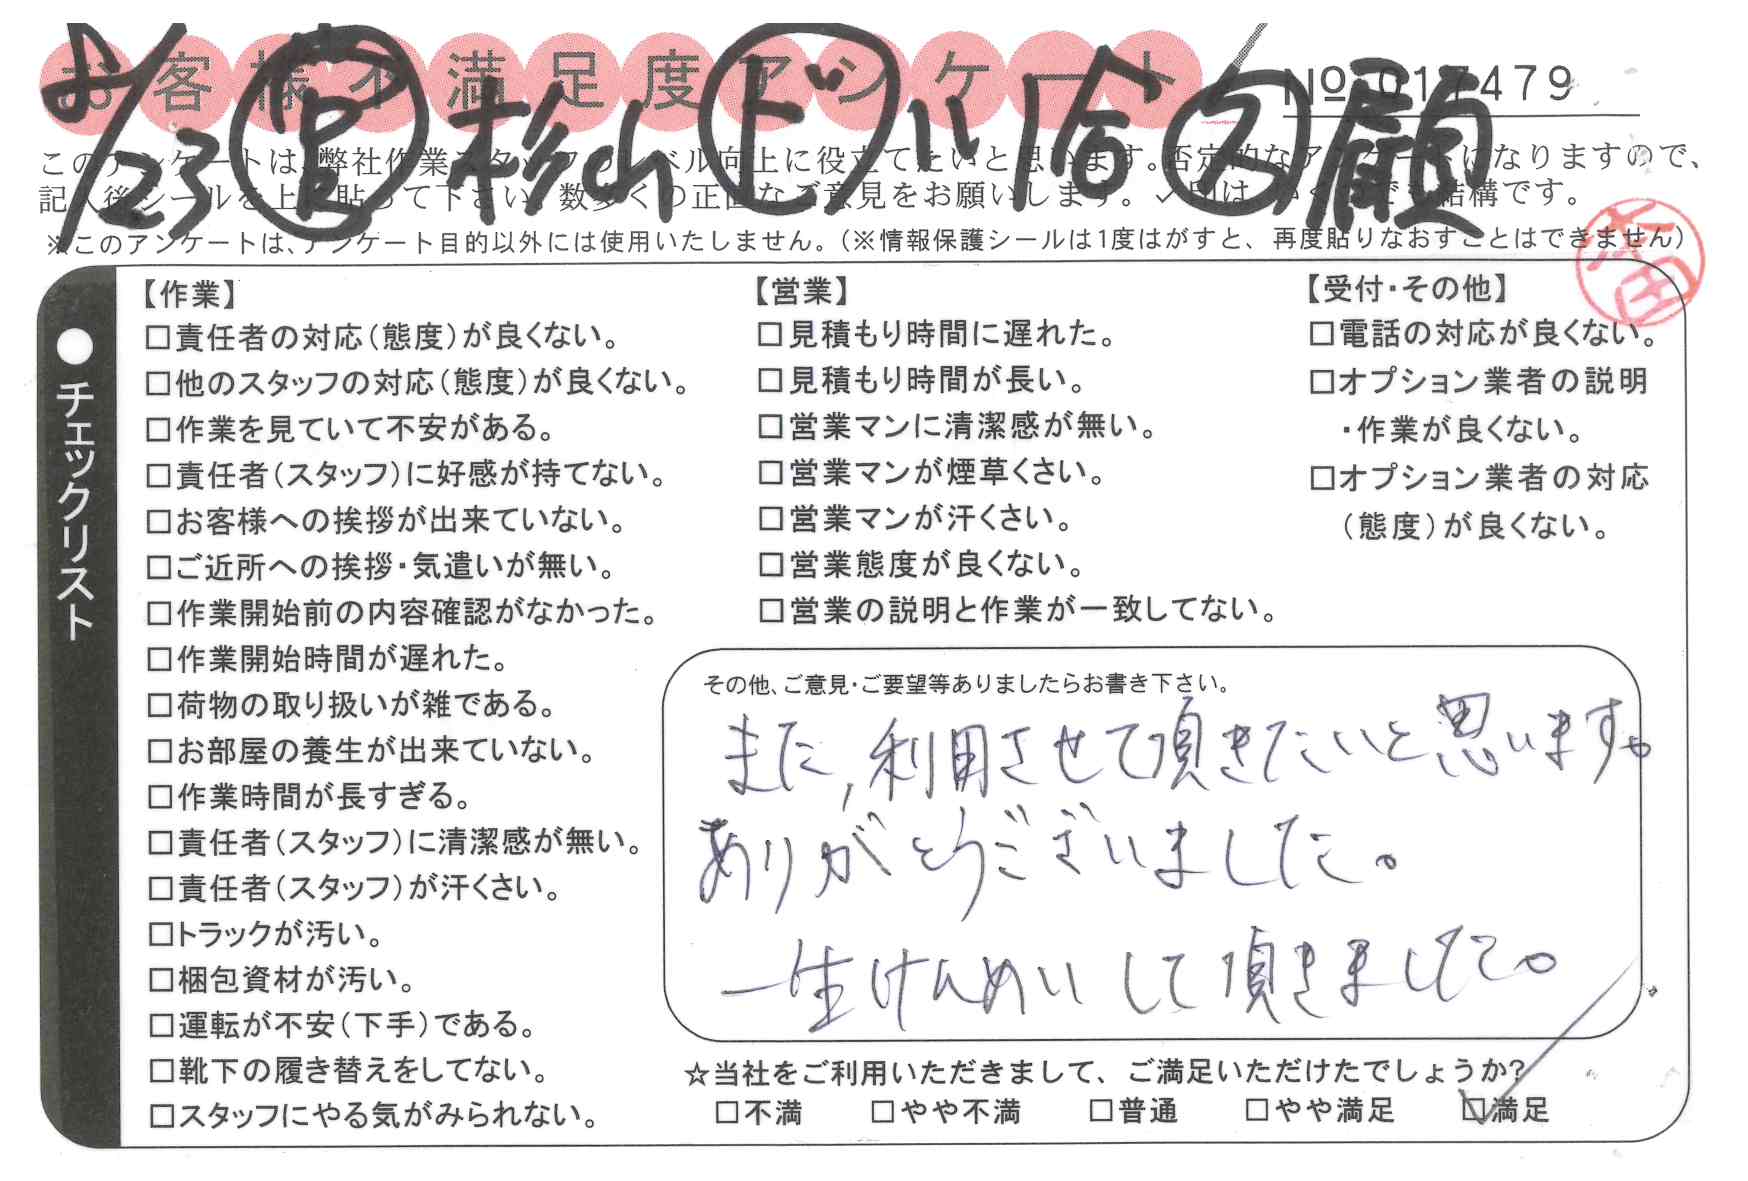 お客様不満足度アンケート
No 017479
/23 杉山 ド 川合 ス 顧
このアンケートは、弊社作業スタッフのレベル向上に役立てたいと思います。否定的なアンケートになりますので、
記入後シールを上に貼って下さい。数多くの正直なご意見をお願いします。✓印は、いくつでも結構です。
※このアンケートは、アンケート目的以外には使用いたしません。（※情報保護シールは1度はがすと、再度貼りなおすことはできません）
●チェックリスト
【作業】
□責任者の対応（態度）が良くない。
□他のスタッフの対応（態度）が良くない。
□作業を見ていて不安がある。
□責任者（スタッフ）に好感が持てない。
□お客様への挨拶が出来ていない。
□ご近所への挨拶・気遣いが無い。
□作業開始前の内容確認がなかった。
□作業開始時間が遅れた。
□荷物の取り扱いが雑である。
□お部屋の養生が出来ていない。
□作業時間が長すぎる。
□責任者（スタッフ）に清潔感が無い。
□責任者（スタッフ）が汗くさい。
□トラックが汚い。
□梱包資材が汚い。
□運転が不安（下手）である。
□靴下の履き替えをしてない。
□スタッフにやる気がみられない。
【営業】
□見積もり時間に遅れた。
□見積もり時間が長い。
□営業マンに清潔感が無い。
□営業マンが煙草くさい。
□営業マンが汗くさい。
□営業態度が良くない。
□営業の説明と作業が一致してない。
【受付・その他】
□電話の対応が良くない。
□オプション業者の説明
・作業が良くない。
□オプション業者の対応
（態度）が良くない。
その他、ご意見・ご要望等ありましたらお書き下さい。
また，利用させて頂きたいと思います。
ありがとうございました。
一生けんめいして頂きまして。
☆当社をご利用いただきまして、ご満足いただけたでしょうか？
□不満 □やや不満 □普通 □やや満足 ☑満足